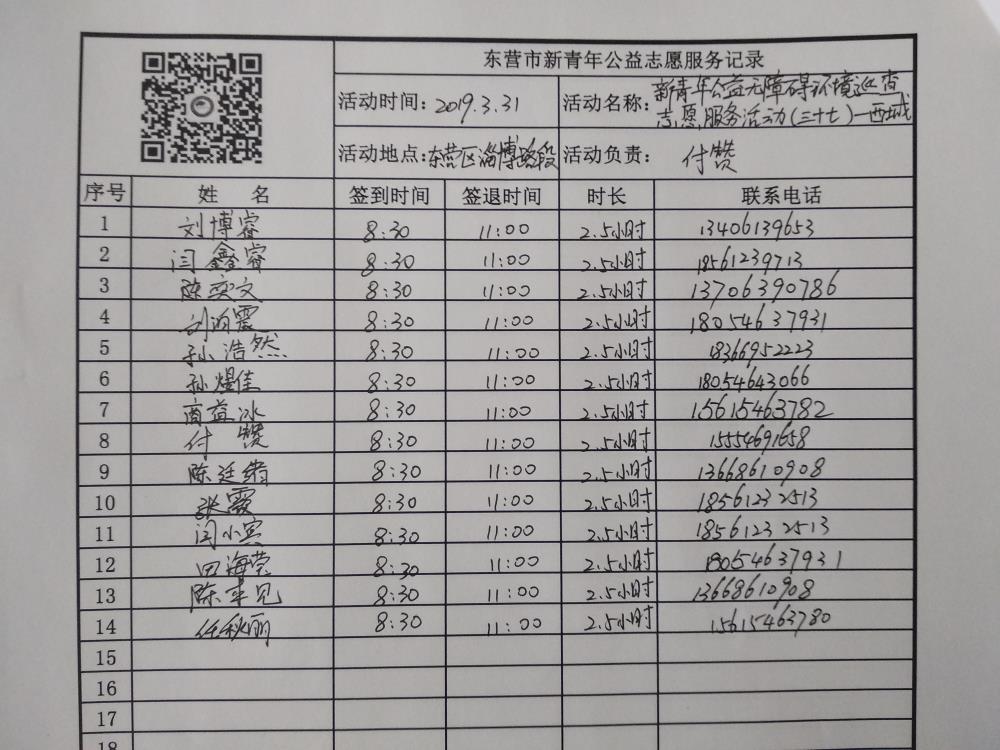 东营市新青年公益志愿服务记录
活动时间: 2019.3.31 活动名称: 新青年公益无障碍环境巡查
志愿服务活动(三十七)—西城
活动地点: 东营区淄博路段 活动负责: 付赞
序号 姓 名 签到时间 签退时间 时长 联系电话
1 刘博睿 8:30 11:00 2.5小时 13406139653
2 闫鑫睿 8:30 11:00 2.5小时 18561239713
3 陈奕文 8:30 11:00 2.5小时 13706390786
4 刘雨震 8:30 11:00 2.5小时 18054637931
5 孙浩然 8:30 11:00 2.5小时 18366952223
6 孙煜佳 8:30 11:00 2.5小时 18054643066
7 商益冰 8:30 11:00 2.5小时 15615463782
8 付赞 8:30 11:00 2.5小时 15554691658
9 陈廷绪 8:30 11:00 2.5小时 13668610908
10 张霞 8:30 11:00 2.5小时 18561232513
11 闫小宾 8:30 11:00 2.5小时 18561232513
12 田海荣 8:30 11:00 2.5小时 18054637931
13 陈 见 8:30 11:00 2.5小时 13668610908
14 任秋丽 8:30 11:00 2.5小时 15615463780
15
16
17
18